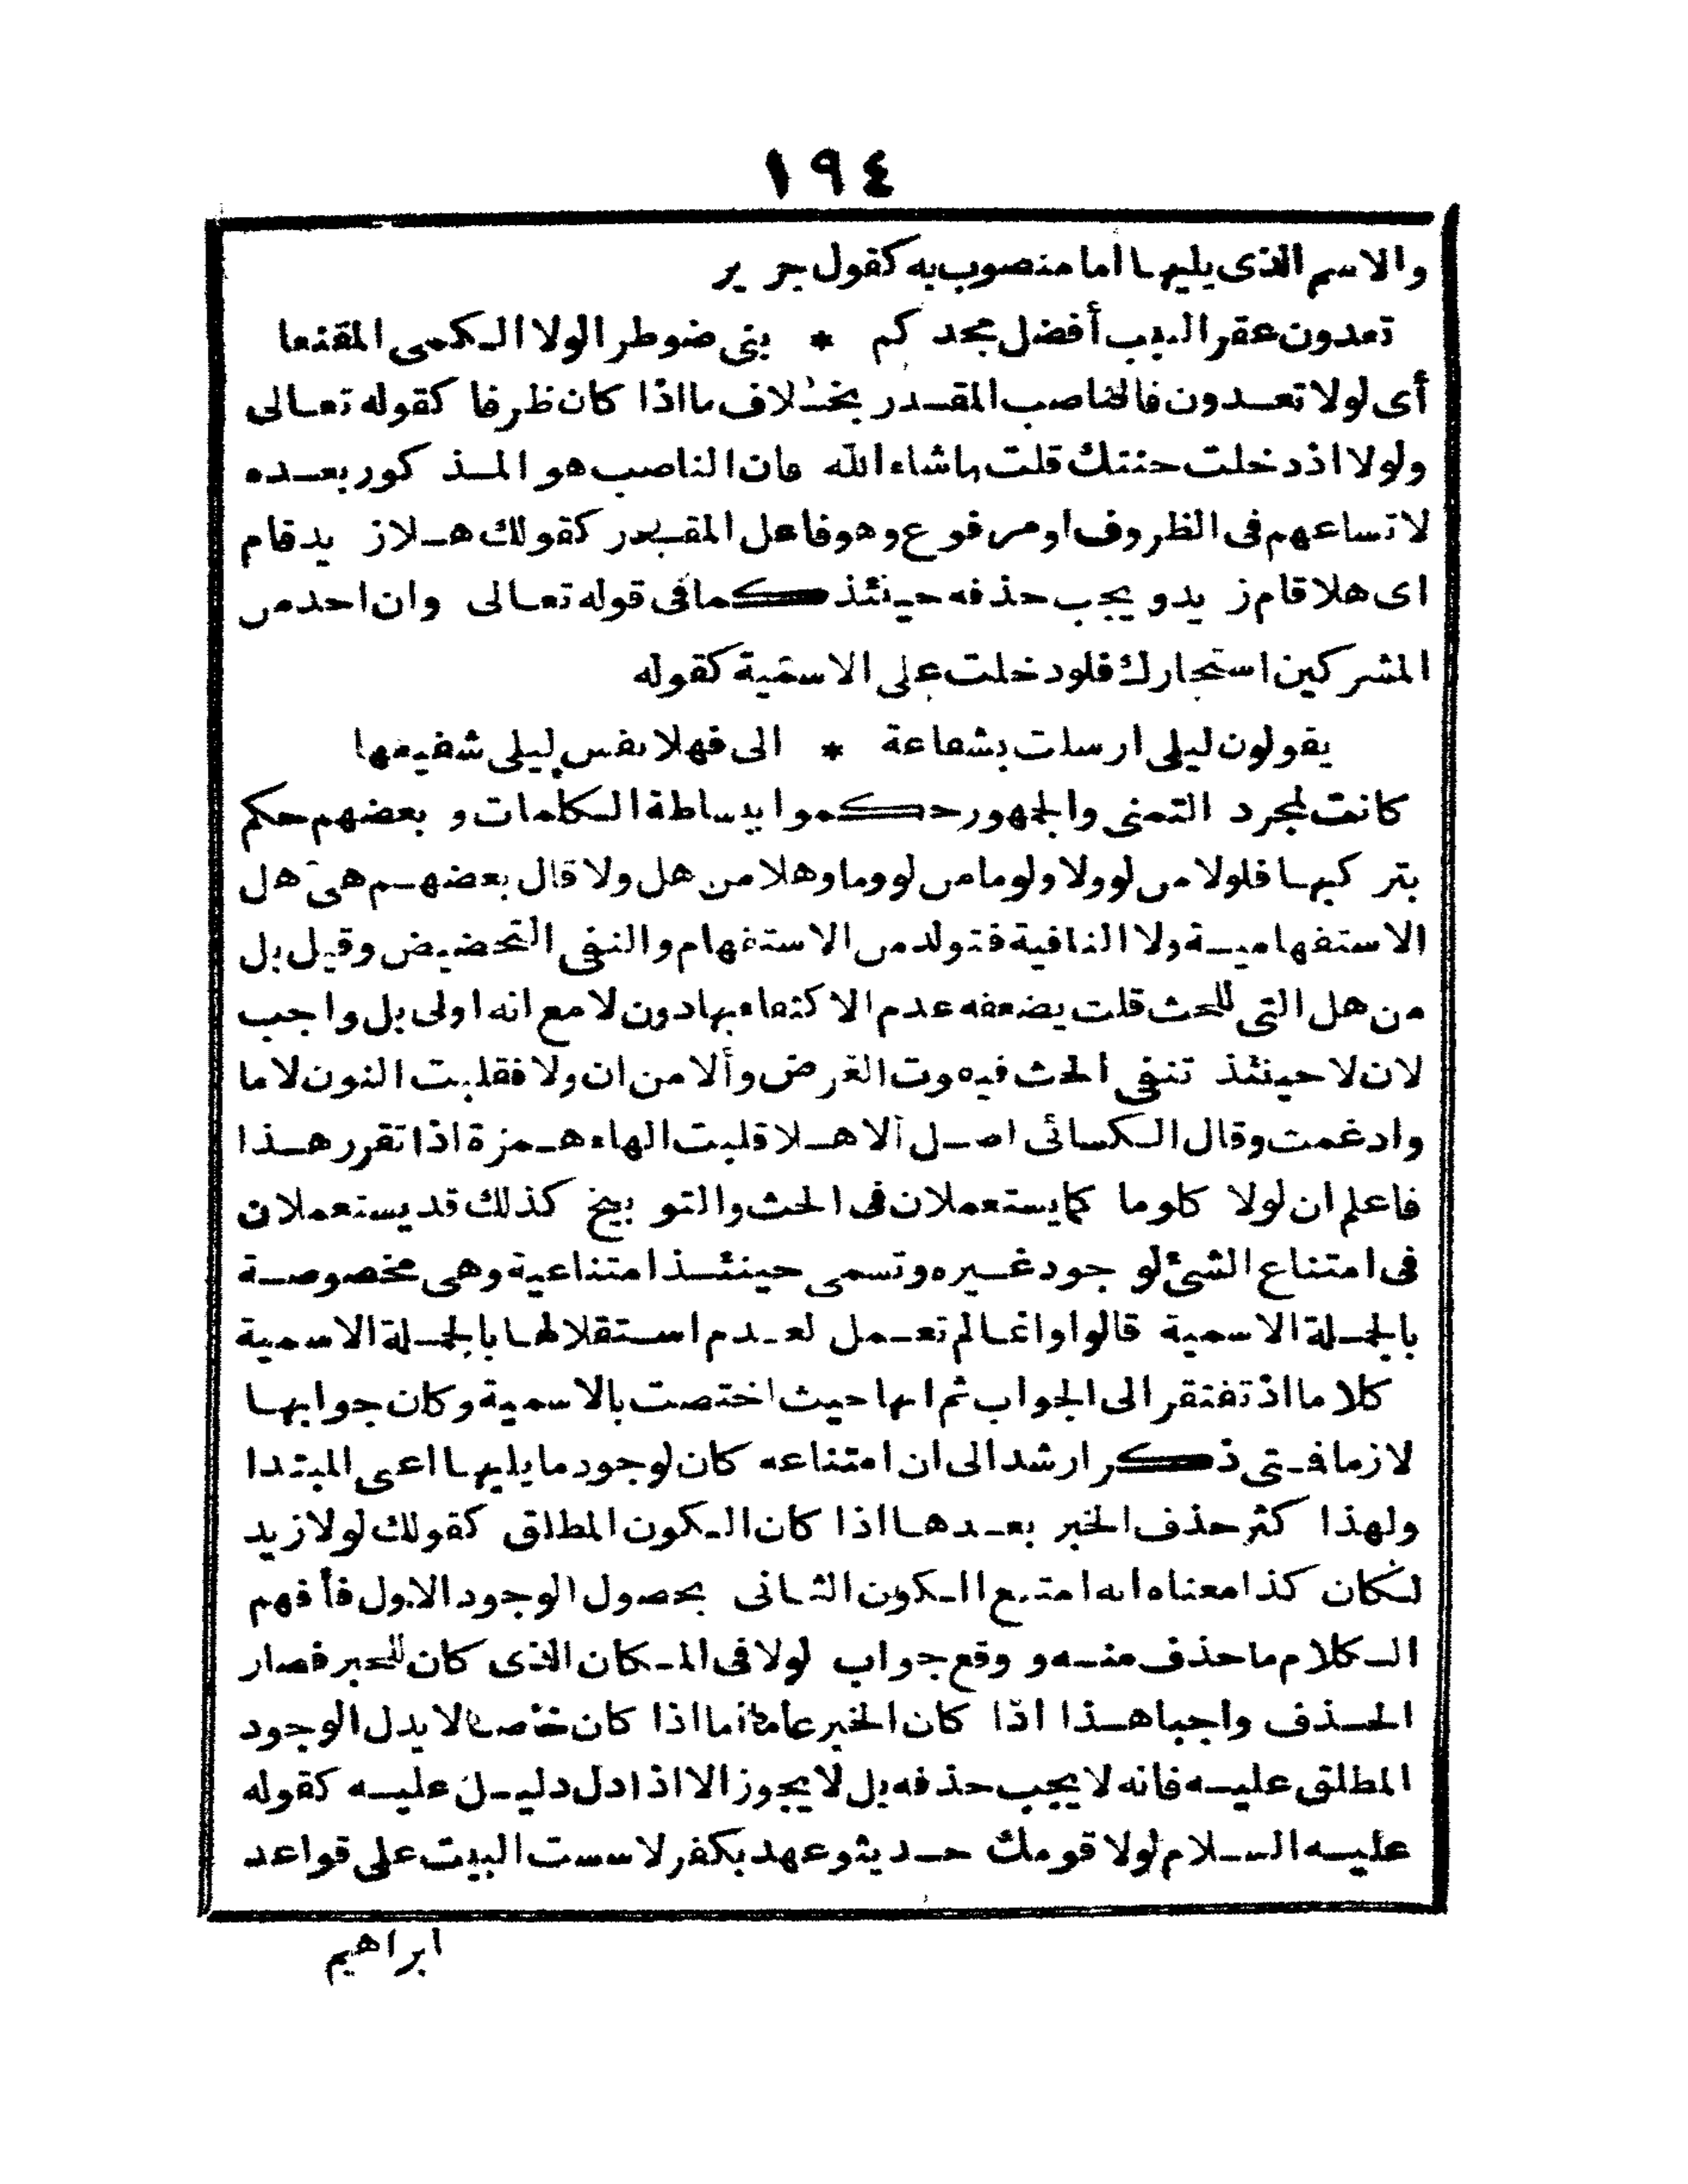 ١٩٤
والاسم الذى يليها اما منصوب به كقول جرير
تعدون عقر النيب أفضل مجدكم * بنى ضوطرا لولا الكمى المقنعا
أى لولا تعدون فالناصب المقدر بخلاف ما اذا كان ظرفا كقوله تعالى
ولولا اذ دخلت جنتك قلت ماشاء الله فان الناصب هو المذكور بعده
لاتساعهم فى الظروف او مرفوع وهو فاعل المقدر كقولك هلا زيد قام
اى هلا قام زيد و يجب حذفه حينئذ كما فى قوله تعالى وان احد من
المشركين استجارك فلو دخلت على الاسمية كقوله
يقولون ليلى ارسلت بشفاعة * الى فهلا نفس ليلى شفيعها
كانت لمجرد التمنى والجمهور حكموا ببساطة الكلمات و بعضهم حكم
بتركيبها فلولا من لو ولا ولوما من لو وما وهلا من هل ولا قال بعضهم هى هل
الاستفهامية ولا النافية فتولد من الاستفهام والنفى التحضيض وقيل بل
من هل التى للحث قلت يضعفه عدم الاكتفاء بها دون لا مع انه اولى بل واجب
لان لا حينئذ تنفى الحث فيفوت الغرض وألا من ان ولا فقلبت النون لاما
وادغمت وقال الكسائى اصل ألا هلا قلبت الهاء همزة اذا تقرر هذا
فاعلم ان لولا كلوما كما يستعملان فى الحث والتوبيخ كذلك قد يستعملان
فى امتناع الشئ لوجود غيره وتسمى حينئذ امتناعية وهى مخصوصة
بالجملة الاسمية قالوا وانما لم تعمل لعدم استقلالها بالجملة الاسمية
كلاما اذ تفتقر الى الجواب ثم انها حيث اختصت بالاسمية وكان جوابها
لازما فتى ذكر ارشد الى ان امتناعه كان لوجود ما يليها اعى المبتدا
ولهذا كثر حذف الخبر بعدها اذا كان الكون المطلق كقولك لولا زيد
لكان كذا معناه انه امتنع الكون الثانى بحصول الوجود الاول فأفهم
الكلام ما حذف منه و وقع جواب لولا فى المكان الذى كان للخبر فصار
الحذف واجبا هذا اذا كان الخبر عاما أما اذا كان خاصا لا يدل الوجود
المطلق عليه فانه لا يجب حذفه بل لا يجوز الا اذا دل دليل عليه كقوله
عليه السلام لولا قومك حديثو عهد بكفر لاسست البيت على قواعد
ابراهيم